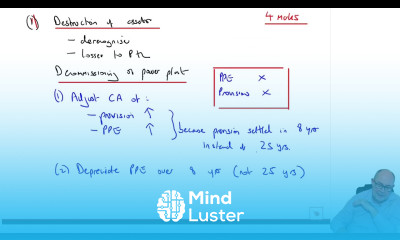 (1) Destruction of assets
4 Notes
– derecognise
– Losses to P/L
Decommissioning of power plant
PPE X
Provisions X
(1) Adjust CA of :
– provision ↑
– PPE ↑
because provision settled in 8 yrs
instead of 25 yrs.
(2) Depreciate PPE over 8 yrs (not 25 yrs)
Mind
Luster